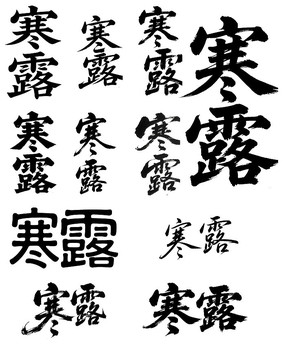 寒露
寒露
寒露
寒露
寒露
寒露
寒露
寒露
寒露
寒露
寒露